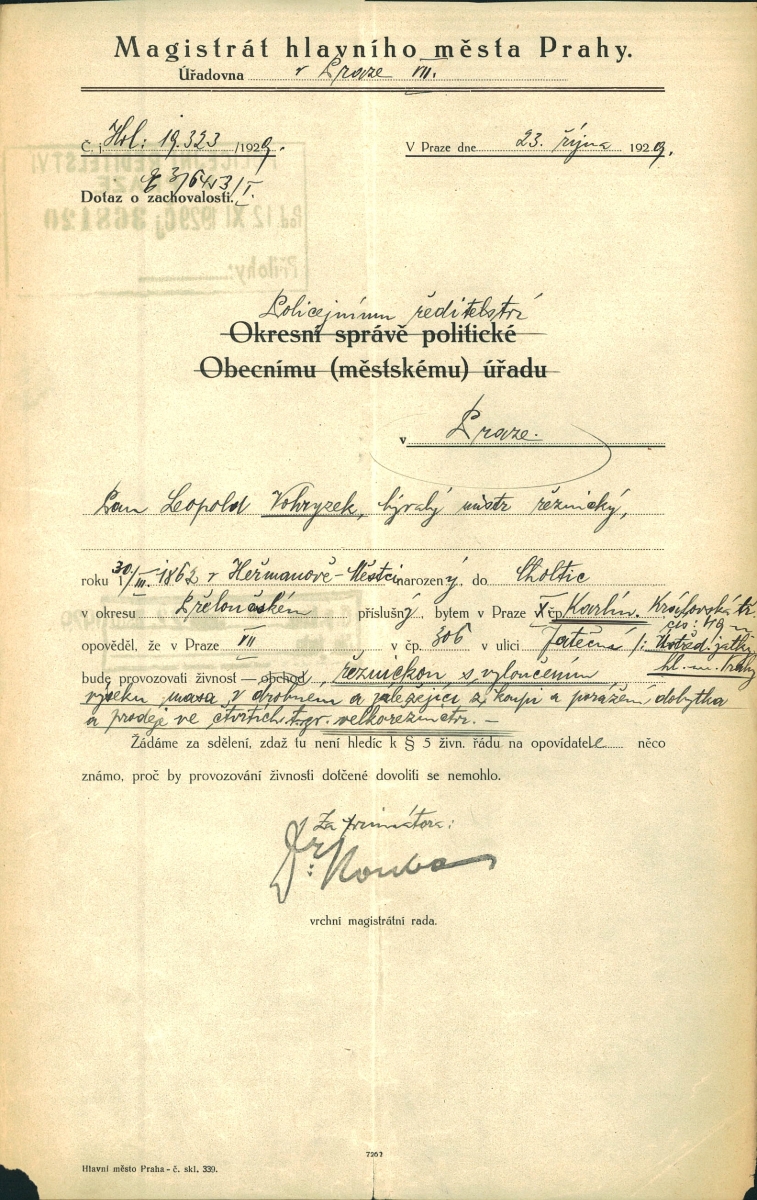 Magistrát hlavního města Prahy.
Úřadovna v Praze VII.
Č. j. Hvl: 19.323 /1929.
V Praze dne 23. října 1929.
Dotaz o zachovalosti.
Policejnímu ředitelství
Okresní správě politické
Obecnímu (městskému) úřadu
v Praze.
Pan Leopold Vohryzek, bývalý mistr řeznický,
roku 30/III. 1862 v Heřmanově-Městci narozený, do Choltic
v okresu Přeloučském příslušný, bytem v Praze X čp. Karlín. Královská tř.
opověděl, že v Praze VII v čp. 306 v ulici Jateční /: Ústřed. jatky
hl. m. Prahy
bude provozovati živnost — obchod řeznickou, s vyloučením
výseku masa v drobném a záležející z koupi a porážení dobytka
a prodej ve čtvrtích t. zv. velkořeznictví. —
Žádáme za sdělení, zdaž tu není hledíc k § 5 živn. řádu na opovídatele něco
známo, proč by provozování živnosti dotčené dovoliti se nemohlo.
Za primátora:
Dr. Kouba
vrchní magistrátní rada.
7267
Hlavní město Praha - č. skl. 339.